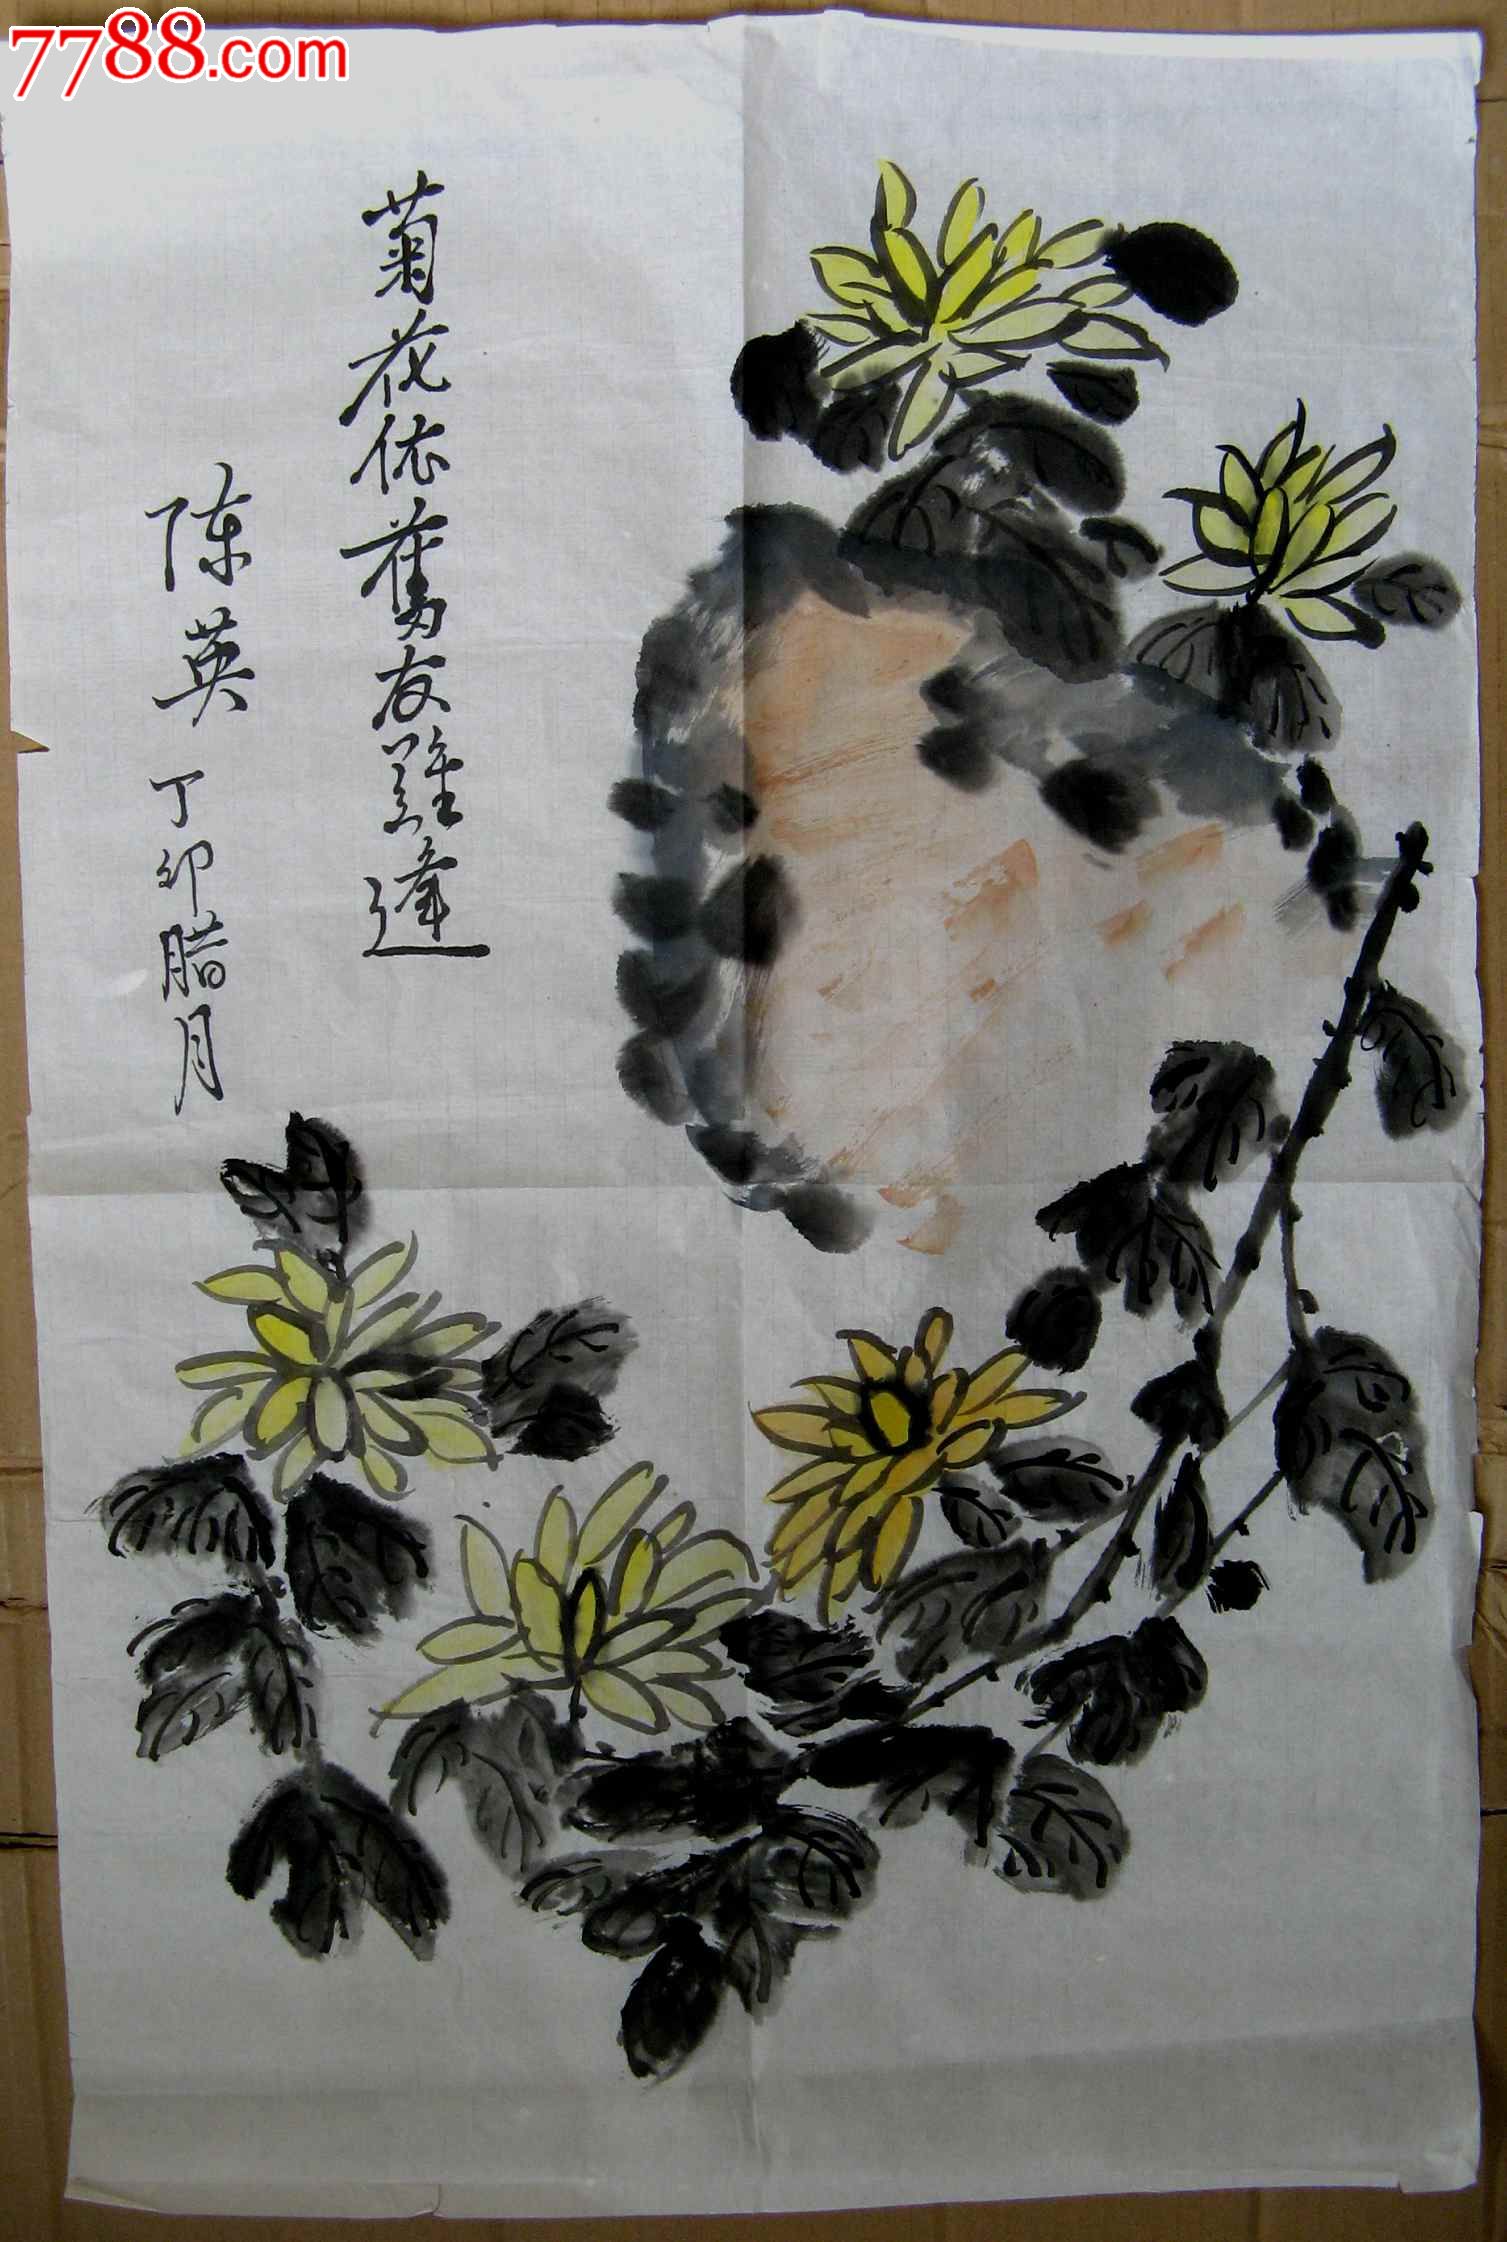 7788.com
菊花依舊友難逢
陈英 丁卯腊月